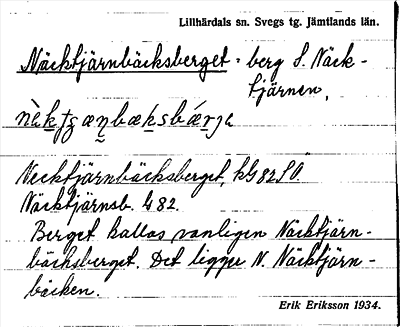 Lillhärdals sn. Svegs tg. Jämtlands län.
Näcktjärnbäcksberget: berg S. Näck-
tjärnen.
Necktjärnbäcksberget,
Näcktjärnsb. G 82.
Berget kallas vanligen Näcktjärn-
bäcksberget. Det ligger N. Näcktjärn-
bäcken.
Erik Eriksson 1934.